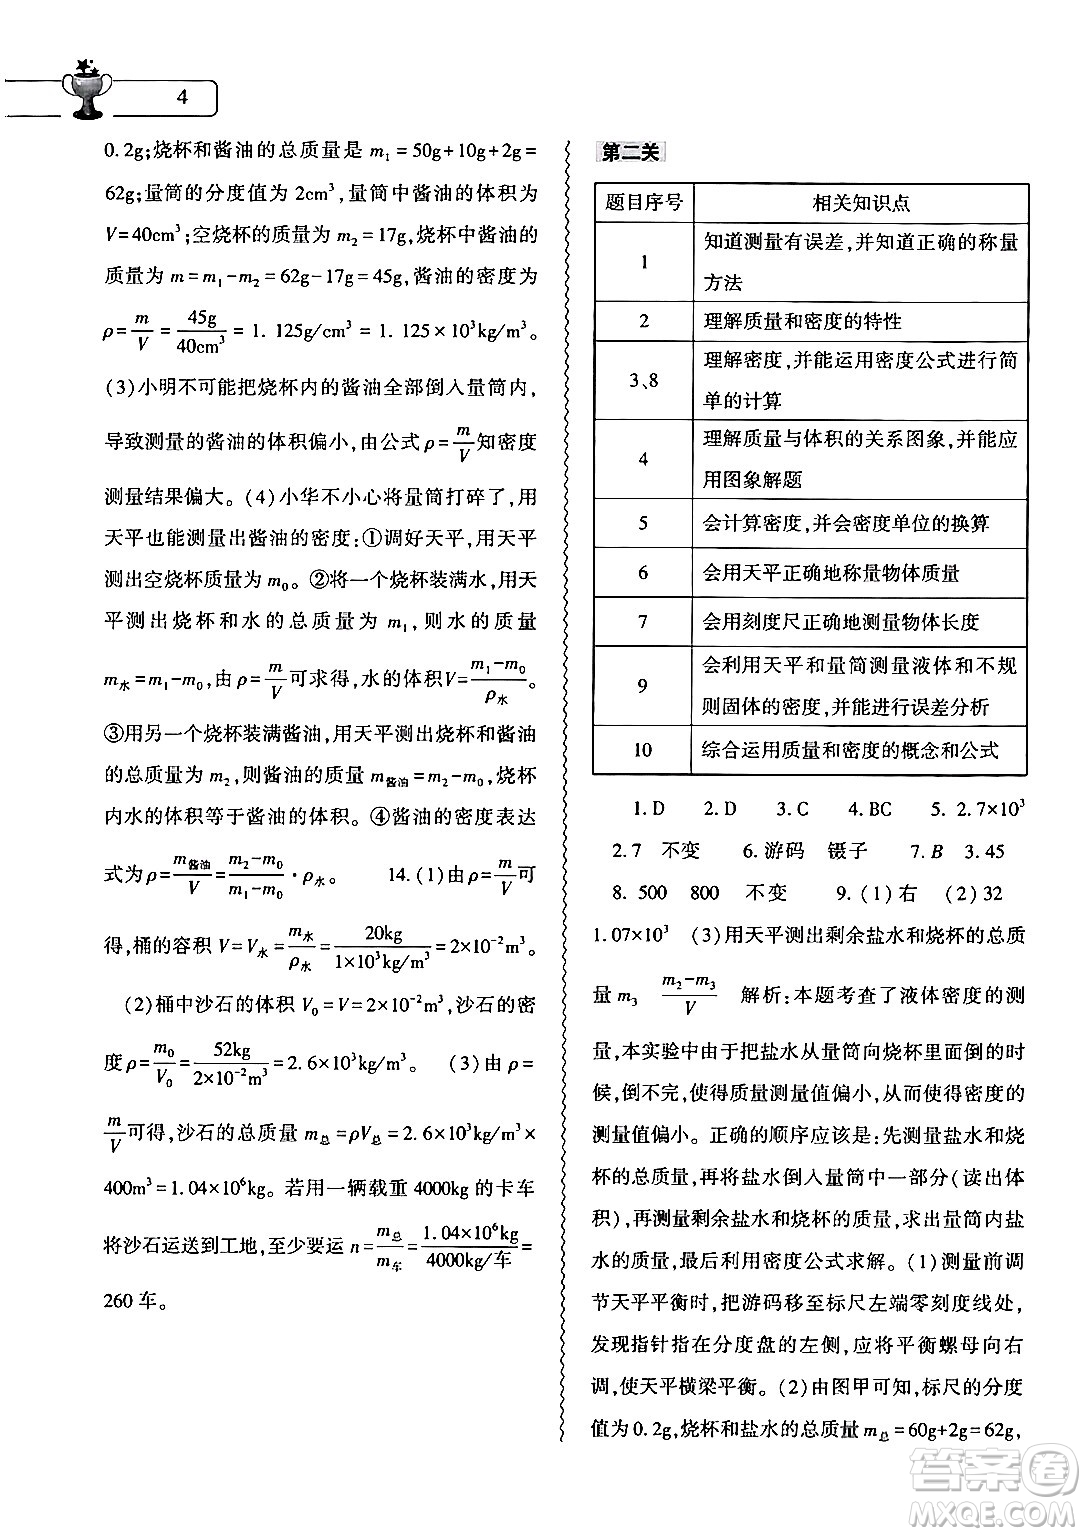 4
0.2g;烧杯和酱油的总质量是 m₁ = 50g+10g+2g=
62g;量筒的分度值为 2cm³,量筒中酱油的体积为
V=40cm³;空烧杯的质量为 m₂ = 17g,烧杯中酱油的
质量为 m = m₁-m₂ = 62g-17g = 45g,酱油的密度为
ρ=m/V=45g/40cm³=1.125g/cm³=1.125×10³kg/m³。
(3)小明不可能把烧杯内的酱油全部倒入量筒内,
导致测量的酱油的体积偏小,由公式 ρ=m/V知密度
测量结果偏大。(4)小华不小心将量筒打碎了,用
天平也能测量出酱油的密度:①调好天平,用天平
测出空烧杯质量为 m₀。②将一个烧杯装满水,用天
平测出烧杯和水的总质量为 m₁,则水的质量
m水=m₁-m₀,由 ρ=m/V可求得,水的体积V=(m₁-m₀)/ρ水。
③用另一个烧杯装满酱油,用天平测出烧杯和酱油
的总质量为 m₂,则酱油的质量 m酱油=m₂-m₀,烧杯
内水的体积等于酱油的体积。④酱油的密度表达
式为 ρ=m酱油/V=(m₂-m₀)/(m₁-m₀)·ρ水。 14.(1)由 ρ=m/V可
得,桶的容积 V=V水=m水/ρ水=20kg/(1×10³kg/m³)=2×10⁻²m³。
(2)桶中沙石的体积 V₀=V=2×10⁻²m³,沙石的密
度 ρ=m₀/V₀=52kg/(2×10⁻²m³)=2.6×10³kg/m³。 (3)由 ρ=
m/V可得,沙石的总质量 m总=ρV总=2.6×10³kg/m³×
400m³=1.04×10⁶kg。若用一辆载重 4000kg 的卡车
将沙石运送到工地,至少要运 n=m总/m车=1.04×10⁶kg/(4000kg/车)=
260 车。
第二关
题目序号 相关知识点
1 知道测量有误差,并知道正确的称量
方法
2 理解质量和密度的特性
3、8 理解密度,并能运用密度公式进行简
单的计算
4 理解质量与体积的关系图象,并能应
用图象解题
5 会计算密度,并会密度单位的换算
6 会用天平正确地称量物体质量
7 会用刻度尺正确地测量物体长度
9 会利用天平和量筒测量液体和不规
则固体的密度,并能进行误差分析
10 综合运用质量和密度的概念和公式
1.D 2.D 3.C 4.BC 5.2.7×10³
2.7 不变 6.游码 镊子 7.B 3.45
8.500 800 不变 9.(1)右 (2)32
1.07×10³ (3)用天平测出剩余盐水和烧杯的总质
量 m₃ (m₂-m₃)/V 解析:本题考查了液体密度的测
量,本实验中由于把盐水从量筒向烧杯里面倒的时
候,倒不完,使得质量测量值偏小,从而使得密度的
测量值偏小。正确的顺序应该是:先测量盐水和烧
杯的总质量,再将盐水倒入量筒中一部分(读出体
积),再测量剩余盐水和烧杯的质量,求出量筒内盐
水的质量,最后利用密度公式求解。(1)测量前调
节天平平衡时,把游码移至标尺左端零刻度线处,
发现指针指在分度盘的左侧,应将平衡螺母向右
调,使天平横梁平衡。(2)由图甲可知,标尺的分度
值为 0.2g,烧杯和盐水的总质量 m总=60g+2g=62g,
答案卷
MXQE.COM